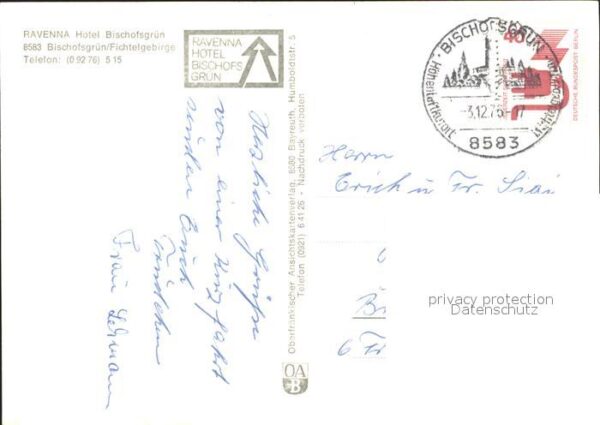 RAVENNA Hotel Bischofsgrün
8583 Bischofsgrün/Fichtelgebirge
Telefon: (0 92 76) 5 15
RAVENNA
HOTEL
BISCHOFS
GRÜN
Herzliche Grüße
von einer Kurzfahrt
senden Euch
Frau Lehmann
Oberfränkischer Ansichtskartenverlag, 8580 Bayreuth, Humboldtstr. 5
Telefon (0921) 6 41 26 - Nachdruck verboten
OA
B
BISCHOFSGRÜN
Höhenluftkurort
-3.12.76-17
8583
40
DEUTSCHE BUNDESPOST BERLIN
Herrn
Erich u. Fr.
privacy protection
Datenschutz